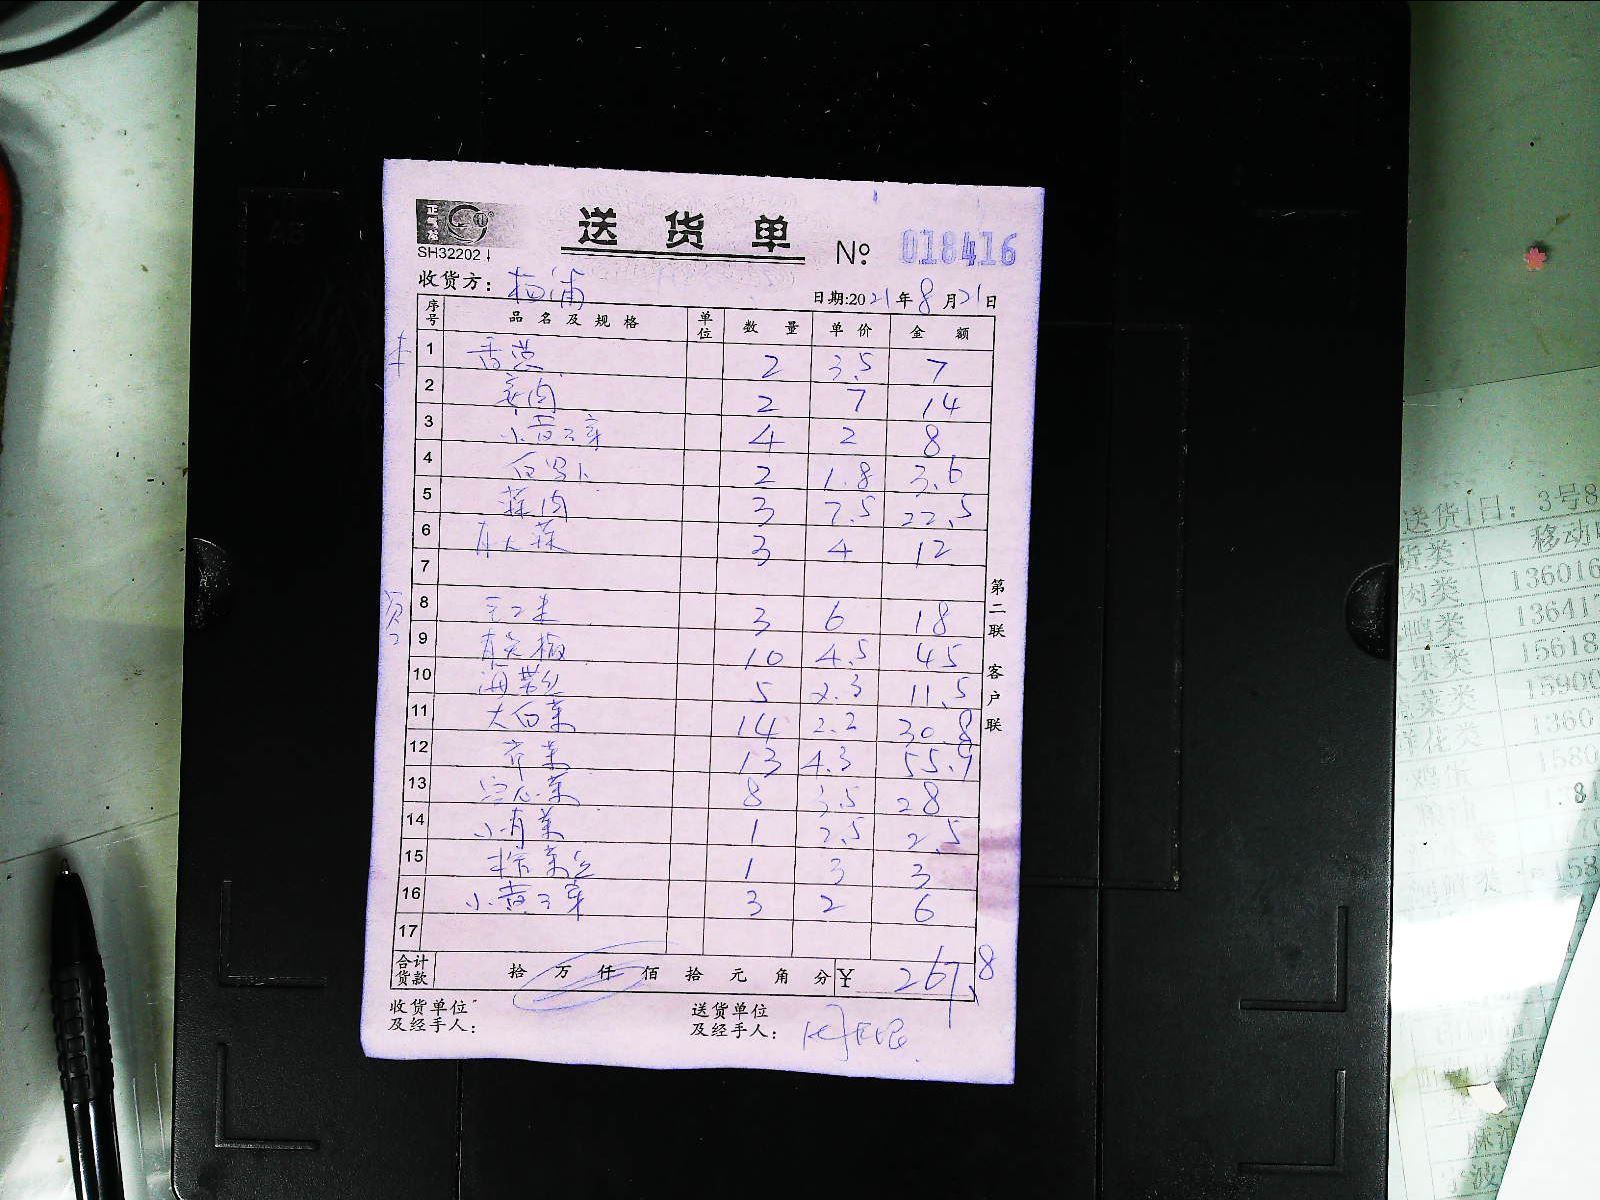 正气农
SH32202
送货单
№ 018416
收货方：杨浦
日期:2021年8月21日
序号 品名及规格 单位 数量 单价 金额
1 香葱 2 3.5 7
2 姜肉 2 7 14
3 小黄豆芽 4 2 8
4 白罗卜 2 1.8 3.6
5 蒜肉 3 7.5 22.5
6 3 4 12
7
8 3 6 18
9 青尖椒 10 4.5 45
10 海带丝 5 2.3 11.5
11 大白菜 14 2.2 30.8
12 芹菜 13 4.3 55.9
13 空心菜 8 3.5 28
14 小青菜 1 2.5 2.5
15 榨菜丝 1 3 3
16 小黄豆芽 3 2 6
17
合计货款 拾 万 仟 佰 拾 元 角 分 ¥ 267.8
收货单位及经手人：
送货单位及经手人：
第二联 客户联
送货日：3号8
移动
货类
肉类 136016
鸭类 136417
果类 15618
菜类 15900
1360
鸡蛋 1580
宁波